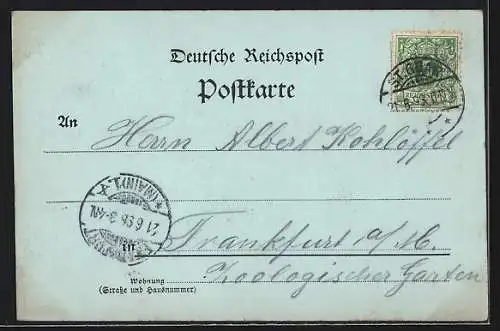 Deutsche Reichspost
Postkarte
An Herrn Albert Kohlöffel
in Frankfurt a/M.
Zoologischer Garten
Wohnung
(Straße und Hausnummer)
(MAIN) 1.
21.6.96.3-4N.